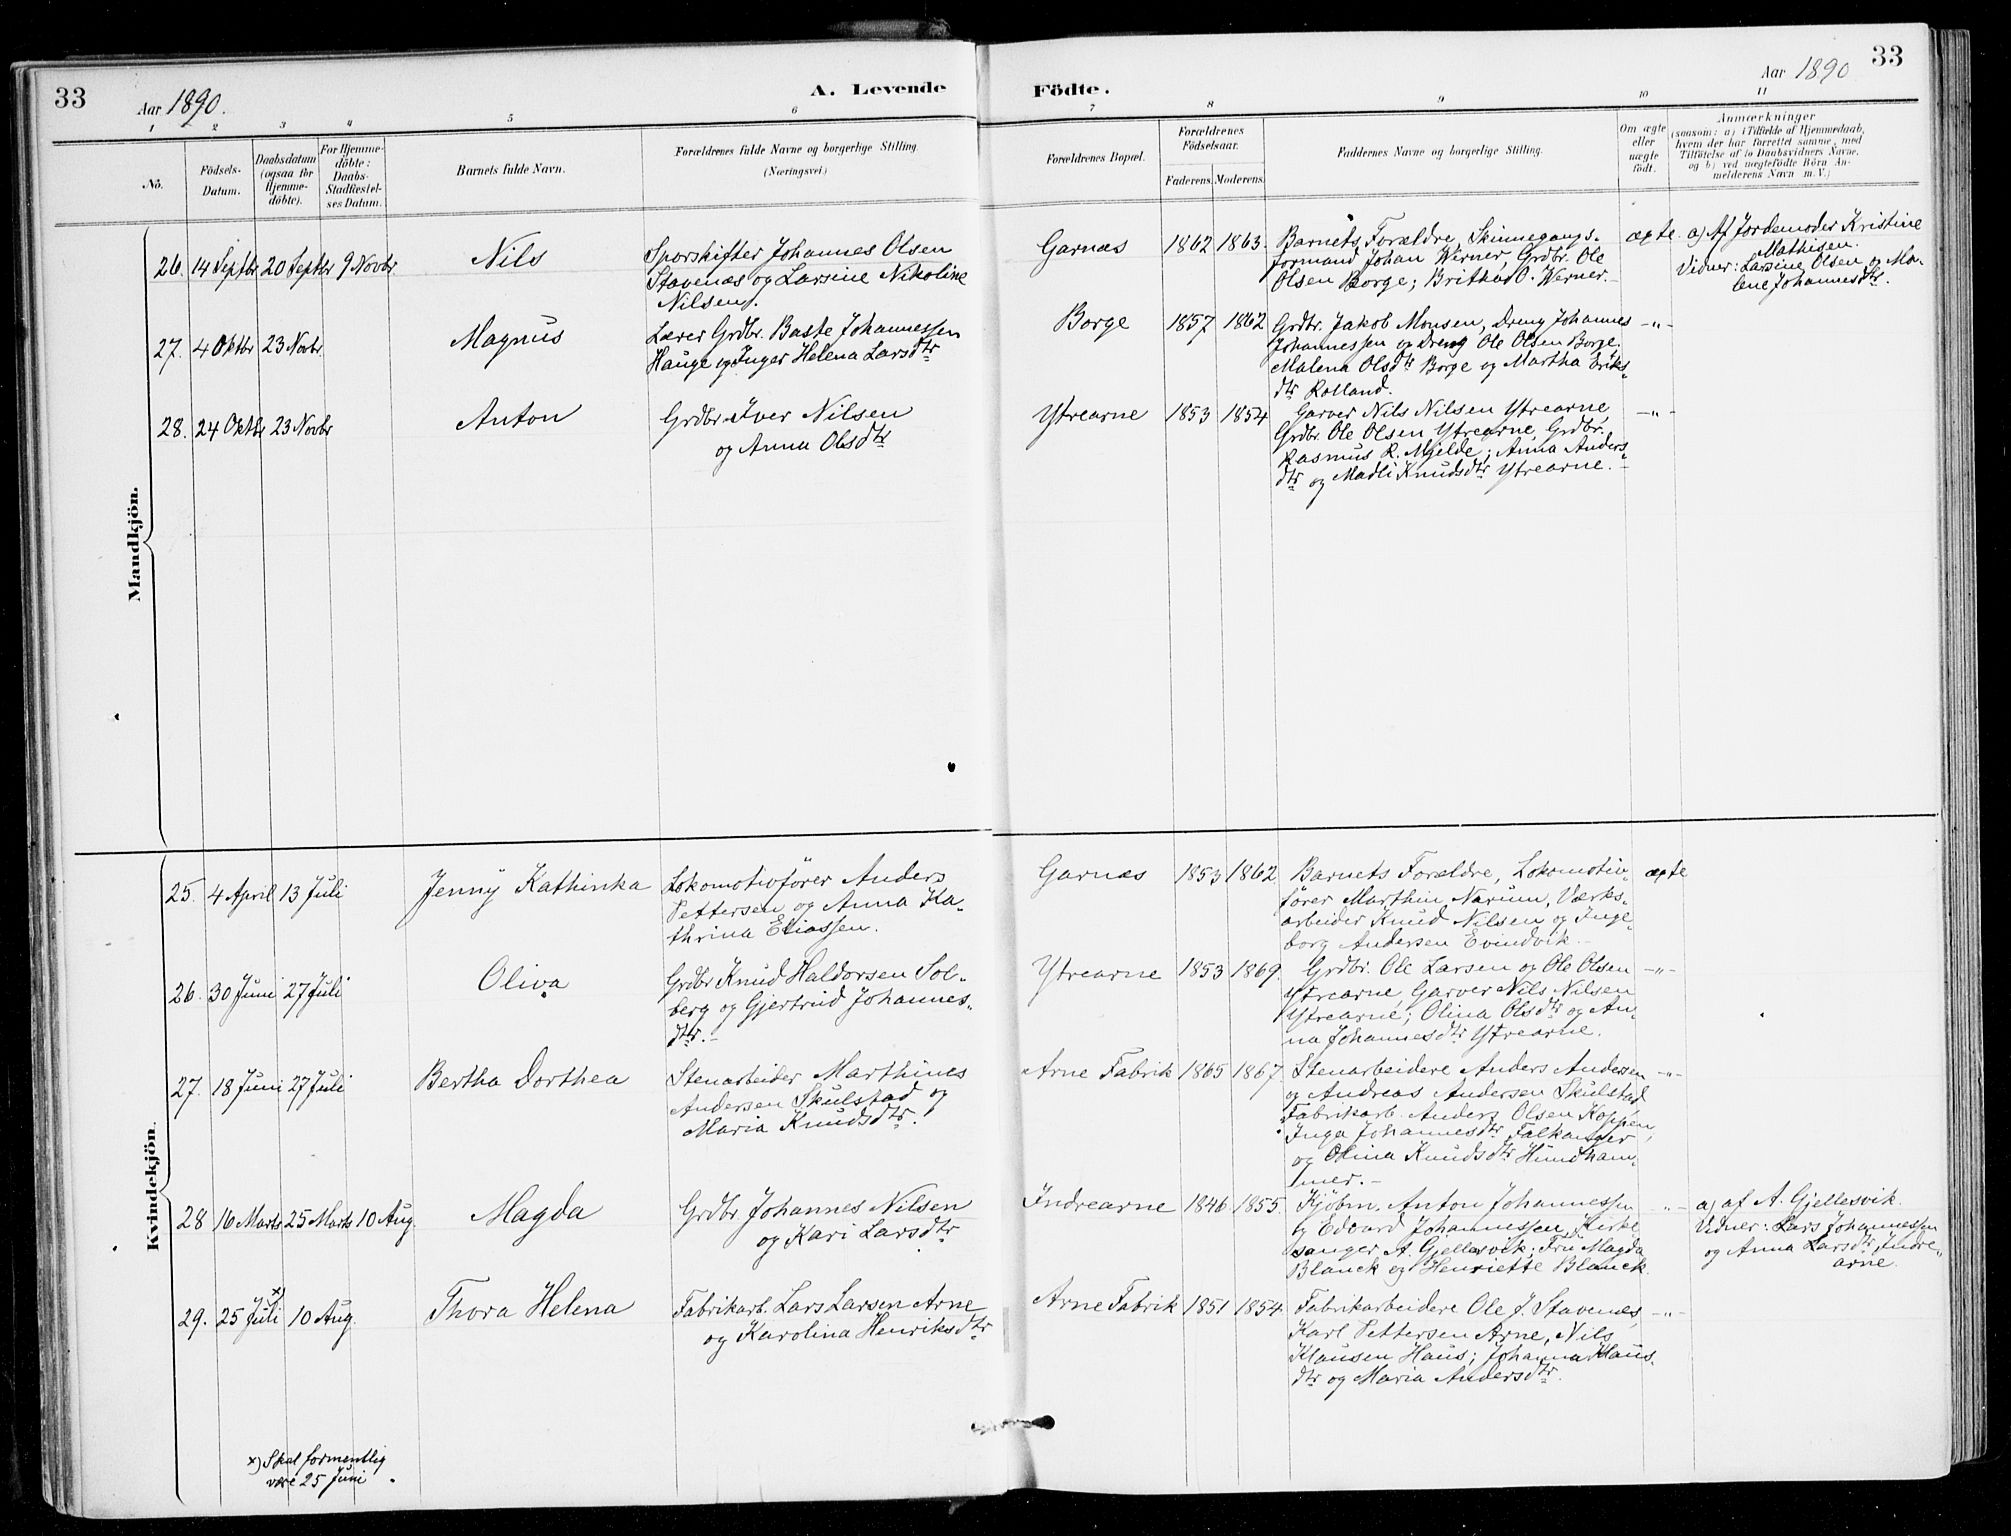 33
Aar 1890.
A. Levende
Födte.
Aar 1890
33
1 2 3 4 5 6 7 8 9 10 11
No.
Födsels-
Datum.
Daabsdatum
(ogsaa for
Hjemme-
döbte).
For Hjemme-
döbte:
Daabs-
Stadfæstel-
ses Datum.
Barnets fulde Navn.
Forældrenes fulde Navne og borgerlige Stilling.
(Næringsvei.)
Forældrenes Bopæl.
Forældrenes
Födselsaar.
Faderens. Moderens.
Faddernes Navne og borgerlige Stilling.
Om ægte
eller
uægte
födt.
Anmærkninger
(saasom: a) i Tilfælde af Hjemmedaab,
hvem der har forrettet samme, med
Tilföielse af to Daabsvidners Navne,
og b) ved uægtefödte Börn An-
melderens Navn m.V.)
Mandkjön.
26. 14 Septbr 20 Septbr 9 Novbr
Nils
Sporskifter Johannes Olsen
Stavenæs og Larsine Nikoline
Nilsen.
Garnæs
1862 1863.
Barnets Forældre, Skinnegangs-
formand Johan Werner, Grdbr. Ole
Olsen Borge; Britha O. Werner.-
ægte
a) Af Jordemoder Kristine
Mathisen.
Vidner: Larsine Olsen og Ma-
lene Johannesdtr.
27. 4 Oktbr 23 Novbr
Magnus
Lærer Grdbr. Baste Johannessen
Hauge og Inger Helena Larsdtr
Borge
1857 1862
Grdbr. Jakob Monsen, Dreng Johannes
Johannessen og Dreng Ole Olsen Borge.
Malena Olsdtr Borge og Martha Eriks-
dtr Rolland.
-"-
28. 24 Oktbr 23 Novbr
Anton
Grdbr Iver Nilsen
og Anna Olsdtr
Ytrearne
1853 1854
Garver Nils Nilsen Ytrearne,
Grdbr. Ole Olsen Ytrearne, Grdbr.
Rasmus R. Mjelde; Anna Anders-
dtr og Madli Knudsdtr Ytrearne.-
-"-
Kvindekjön.
25. 4 April 13 Juli
Jenny Kathinka
Lokomotivfører Anders
Pettersen og Anna Ka-
thrina Eliassen.
Garnæs
1853 1862
Barnets Forældre, Lokomotiv-
fører Marthin Narum, Værks-
arbeider Knud Nilsen og Inge-
borg Andersen Evindvik.-
ægte
26. 30 Juni 27 Juli
Oliva
Grdbr Knud Haldorsen Sol-
berg og Gjertrud Johannes-
dtr.-
Ytrearne
1853 1869.
Grdbr. Ole Larsen og Ole Olsen
Ytrearne, Garver Nils Nilsen
Ytrearne; Olina Olsdtr og An-
na Johannesdtr Ytrearne.
-"-
27. 18 Juni 27 Juli
Bertha Dorthea
Stenarbeider Marthines
Andersen Skulstad og
Maria Knudsdtr.
Arne Fabrik
1865 1867
Stenarbeidere Anders Andersen
og Andreas Andersen Skulstad
Fabrikarb. Anders Olsen Koppen,
Inga Johannesdtr Falkanger
og Olina Knudsdtr Hundham-
mer.-
-"-
28 16 Marts 25 Marts 10 Aug.
Magda
Grdbr Johannes Nilsen
og Kari Larsdtr
Indrearne
1846 1855.
Kjøbm. Anton Johannessen
og Edvard Johannessen, Kirke-
sanger A. Gjellesvik; Fru Magda
Blanck og Henriette Blanck.
-"-
a) af A. Gjellesvik.
Vidner: Lars Johannessen
og Anna Larsdtr, Indre-
arne.
29. 25 Juli x) 10 Aug.
Thora Helena
Fabrikarb. Lars Larsen Arne
og Karolina Henriksdtr
Arne Fabrik
1851 1854
Fabrikarbeidere Ole J. Stavenes,
Karl Pettersen Arne, Nils
Klausen Haus; Johanna Klaus-
dtr og Maria Andersdtr.
-"-
x) Skal formentlig
være 25 Juni